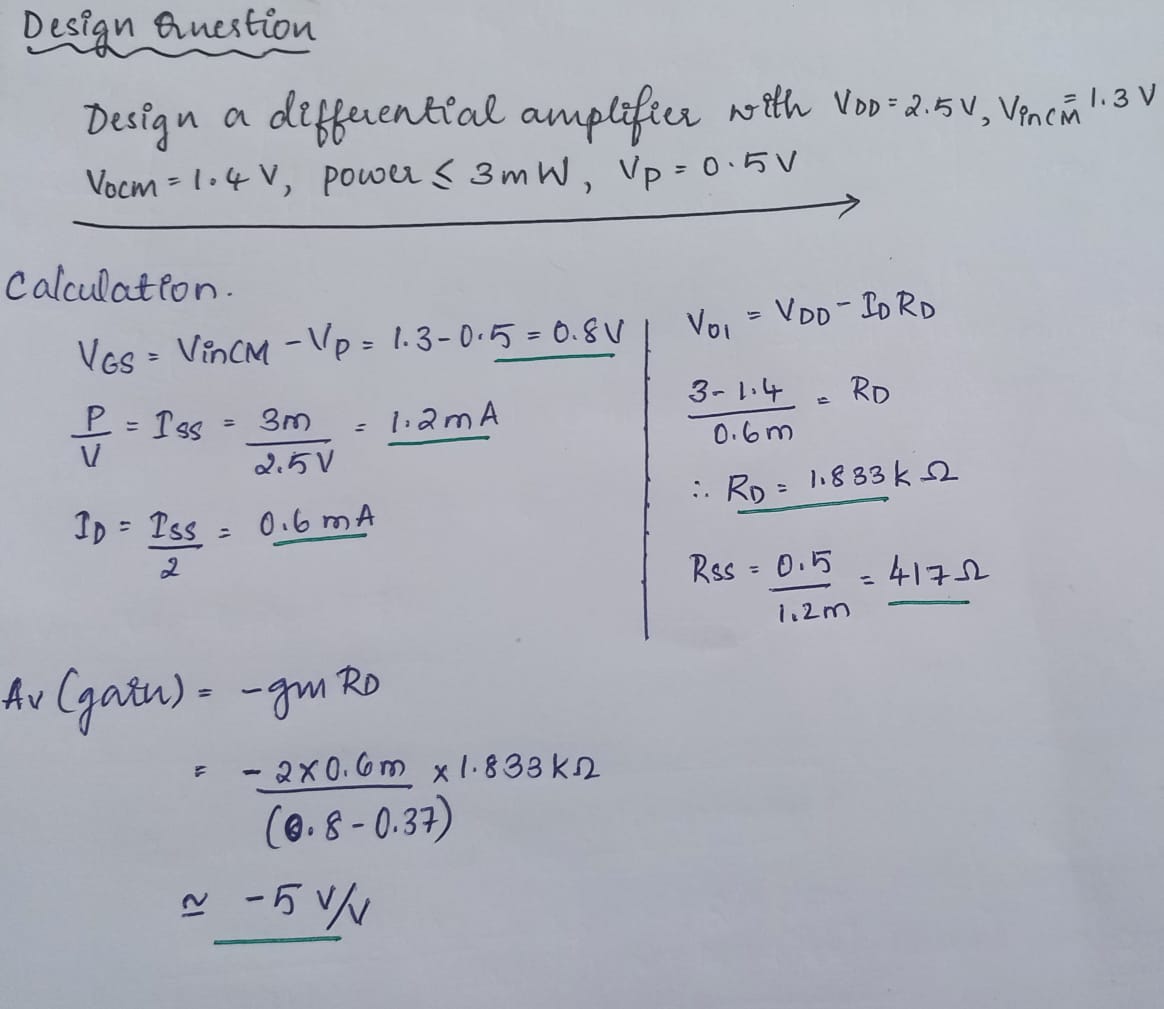 Design Question
Design a differential amplifier with VDD = 2.5 V, VinCM = 1.3 V
VOCM = 1.4 V, power ≤ 3 mW, Vp = 0.5 V
Calculation.
VGS = VinCM - Vp = 1.3 - 0.5 = 0.8 V
P/V = ISS = 3m/2.5V = 1.2 mA
ID = ISS/2 = 0.6 mA
VO1 = VDD - ID RD
3 - 1.4/0.6m = RD
∴ RD = 1.833 k Ω
RSS = 0.5/1.2m = 417 Ω
Av (gain) = - gm RD
= - 2 x 0.6m/(0.8 - 0.37) x 1.833 kΩ
≃ - 5 V/V